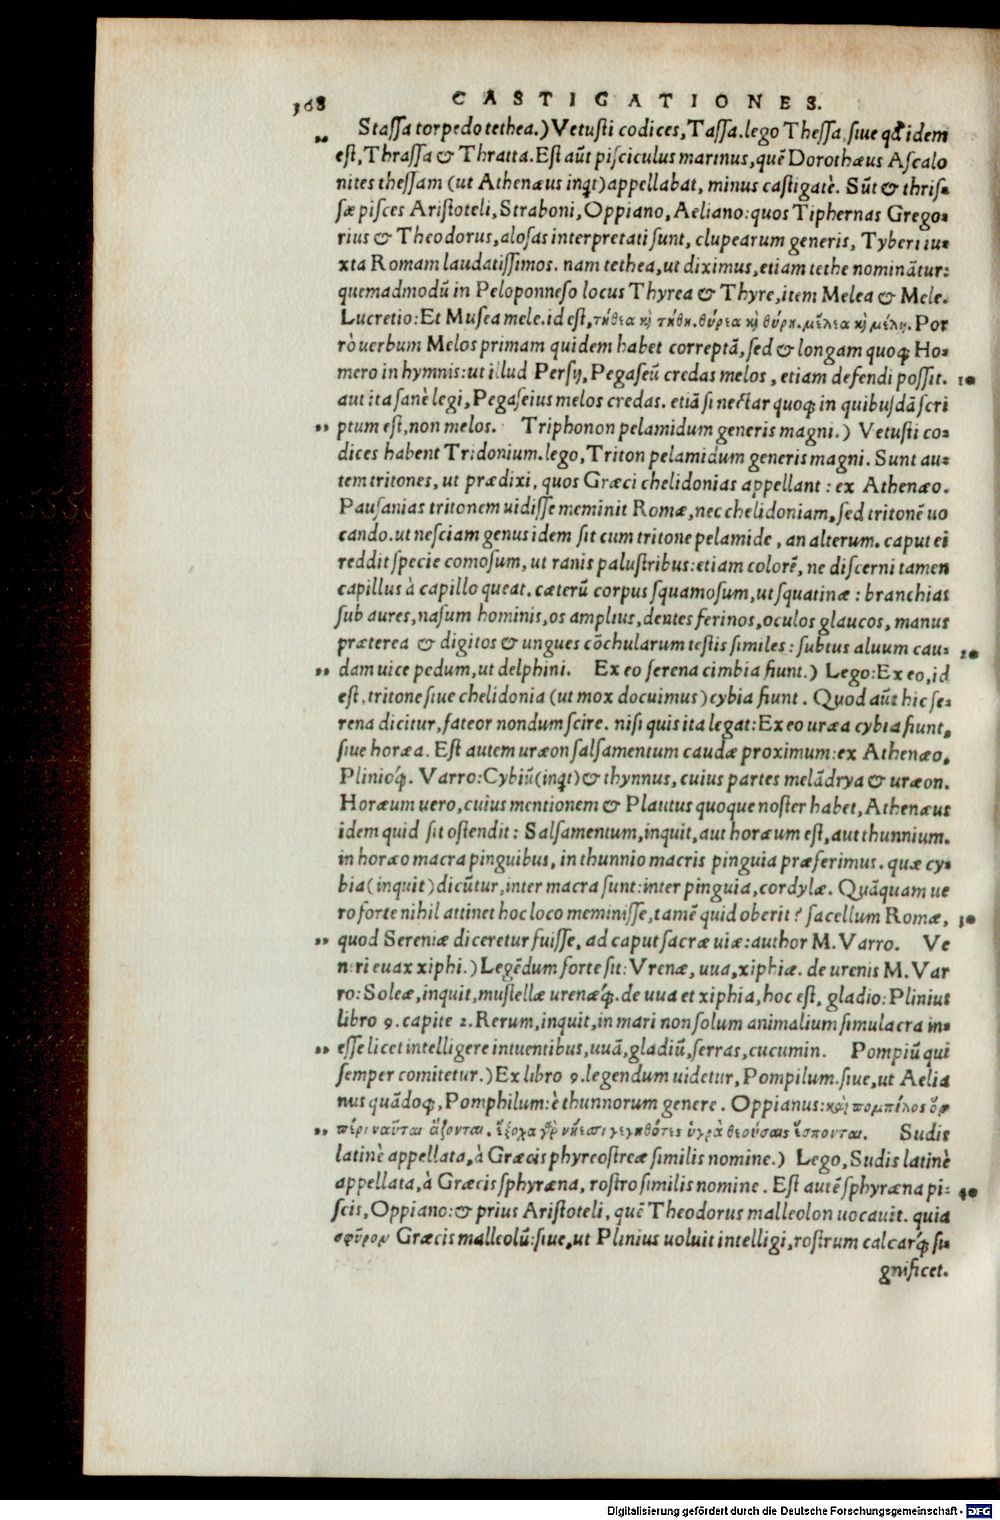 368 CASTIGATIONES.
„ Stassa torpedo tethea.) Vetusti codices, Tassa. lego Thessa, siue qđ idem
est, Thrassa & Thratta. Est aūt pisciculus marinus, quē Dorothæus Ascalo
nites thessam (ut Athenæus inq̃t) appellabat, minus castigatè. Sūt & thris-
sæ pisces Aristoteli, Straboni, Oppiano, Aeliano: quos Tiphernas Grego-
rius & Theodorus, alosas interpretati sunt, clupearum generis, Tyberi iu-
xta Romam laudatissimos. nam tethea, ut diximus, etiam tethe nominātur:
quemadmodū in Peloponneso locus Thyrea & Thyre, item Melea & Mele.
Lucretio: Et Musea mele. id est, τήθεα κ̀ τήθη. θύρεα κ̀ θύρη. μέλεα κ̀ μέλη. Por
rò uerbum Melos primam quidem habet correptā, sed & longam quoq; Ho-
mero in hymnis: ut illud Persij, Pegaseū credas melos, etiam defendi possit. 10
aut ita sanè legi, Pegaseius melos credas. etiā si nectar quoq; in quibusdā scri
„ ptum est, non melos. Triphonon pelamidum generis magni.) Vetusti co-
dices habent Tridonium. lego, Triton pelamidum generis magni. Sunt au-
tem tritones, ut prædixi, quos Græci chelidonias appellant: ex Athenæo.
Pausanias tritonem uidisse meminit Romæ, nec chelidoniam, sed tritonē uo
cando. ut nesciam genus idem sit cum tritone pelamide, an alterum. caput ei
reddit specie comosum, ut ranis palustribus: etiam colorē, ne discerni tamen
capillus à capillo queat. cæterū corpus squamosum, ut squatinæ: branchias
sub aures, nasum hominis, os amplius, dentes ferinos, oculos glaucos, manus
præterea & digitos & ungues cōchularum testis similes: subtus aluum cau- 20
„ dam uice pedum, ut delphini. Ex eo serena cimbia fiunt.) Lego: Ex eo, id
est, tritone siue chelidonia (ut mox docuimus) cybia fiunt. Quod aūt hic se-
rena dicitur, fateor nondum scire. nisi quis ita legat: Ex eo uræa cybia fiunt,
siue horæa. Est autem uræon salsamentum caudæ proximum: ex Athenæo,
Plinioq́;. Varro: Cybiū (inq̃t) & thynnus, cuius partes melādrya & uræon.
Horæum uero, cuius mentionem & Plautus quoque noster habet, Athenæus
idem quid sit ostendit: Salsamentum, inquit, aut horæum est, aut thunnium.
in horæo macra pinguibus, in thunnio macris pinguia præferimus. quæ cy-
bia (inquit) dicūtur, inter macra sunt: inter pinguia, cordylæ. Quāquam ue
ro forte nihil attinet hoc loco meminisse, tamē quid oberit? sacellum Romæ, 30
„ quod Sereniæ diceretur fuisse, ad caput sacræ uiæ: author M. Varro. Ve
neri euax xiphi.) Legēdum forte sit: Vrenæ, uua, xiphiæ. de urenis M. Var
ro: Soleæ, inquit, mustellæ urenæq́;. de uua et xiphia, hoc est, gladio: Plinius
libro 9. capite 2. Rerum, inquit, in mari non solum animalium simulacra in-
„ esse licet intelligere intuentibus, uuā, gladiū, serras, cucumin. Pompiū qui
semper comitetur.) Ex libro 9. legendum uidetur, Pompilum. siue, ut Aelia
nus quādoq;, Pomphilum: è thunnorum genere. Oppianus: καὶ πομπίλος ὅν
„ πέρι ναῦται ἅζονται. ἔξοχα γὰρ νήεσσι γεγηθότες ὑγρὰ θεούσαις ἕσπονται. Sudis
latinè appellata, à Græcis phyreostreæ similis nomine.) Lego, Sudis latinè
appellata, à Græcis sphyræna, rostro similis nomine. Est autē sphyræna pi- 40
scis, Oppiano: & prius Aristoteli, quē Theodorus malleolon uocauit. quia
σφῦρον Græcis malleolū: siue, ut Plinius uoluit intelligi, rostrum calcarq́; si-
gnificet.
Digitalisierung gefördert durch die Deutsche Forschungsgemeinschaft - DFG